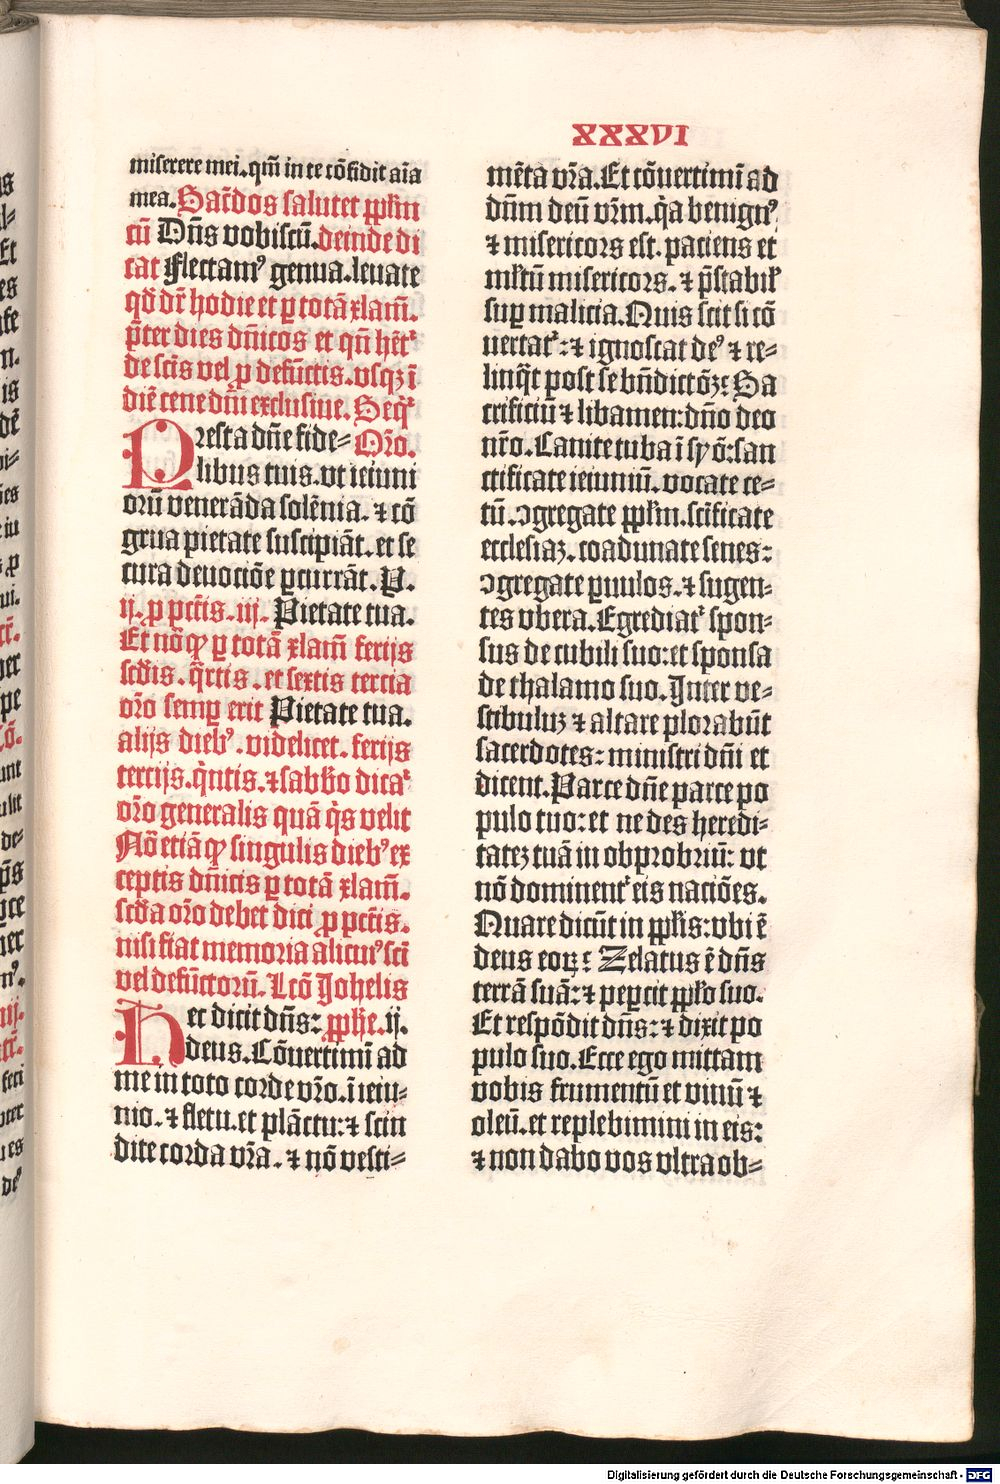 XXXVI
miserere mei. qm̄ in te cōfidit aīa
mea. Sac̄dos salutet ppl̄m
cū Dn̄s vobiscū. deinde di
cat Flectamꝰ genua. leuate
qd̄ dr̄ hodie et ꝑ totā xlam̄.
p̄ter dies dn̄icos et qn̄ hēt᷑
de scīs vel ꝓ defūctis. vsqꝫ ī
diē cene dn̄i exclusiue. Seqr̄
Oro̅.
Presta dn̄e fide⸗
libus tuis. vt ieiuni
orū venerāda solēnia. ⁊ cō
grua pietate suscipiāt. et se
cura deuociōe ꝑcurrāt. P.
ij. ꝓ pctīs. iij. Pietate tua.
Et nō ꝙ ꝑ totā xlam̄ ferijs
scd̄is. q̄rtis. et sextis tercia
oro̅ semꝑ erit Pietate tua.
alijs diebꝰ. videlicet. ferijs
tercijs. q̇ntis. ⁊ sabb̄o dicat᷑
oro̅ generalis quā q̇s velit
Nō etiā ꝙ singulis diebꝰ ex
ceptis dn̄icis ꝑ totā xlam̄.
scd̄a oro̅ debet dici ꝓ pctīs.
nisi fiat memoria alicuiꝰ scī
vel defūctorū. Lcō Johelis
Hec dicit dn̄s: ꝓphe̅. ij.
deus. Cōuertimī ad
me in toto corde vr̄o. ī ieiu⸗
nio. ⁊ fletu. et plāctu: ⁊ scin
dite corda vr̄a. ⁊ nō vesti⸗
mēta vr̄a. Et cōuertimī ad
dn̄m deū vr̄m. q̇a benignꝰ
⁊ misericors est. paciens et
ml̄tū misericors. ⁊ p̄stabil᷑
suꝑ malicia. Quis scit si cō
uertat᷑: ⁊ ignoscat deꝰ ⁊ re⸗
linq̇t post se bn̄dictōꝫ: Sa
crificiū ⁊ libamen: dn̄o deo
nr̄o. Canite tuba ī syō: san
ctificate ieiuniū. vocate ce⸗
tū. ꝯgregate ppl̄m. scīficate
ecclesiaꝫ. coadunate senes:
ꝯgregate ꝑuulos. ⁊ sugen⸗
tes vbera. Egrediat᷑ spon⸗
sus de cubili suo: et sponsa
de thalamo suo. Inter ve⸗
stibuluꝫ ⁊ altare plorabūt
sacerdotes: ministri dn̄i et
dicent. Parce dn̄e parce po
pulo tuo: et ne des heredi⸗
tateꝫ tuā in obprobriū: vt
nō dominent᷑ eis naciōes.
Quare dicūt in ppl̄is: vbi ē
deus eoꝝ: Zelatus ē dn̄s
terrā suā: ⁊ peꝑcit ppl̄o suo.
Et respōdit dn̄s: ⁊ dixit po
pulo suo. Ecce ego mittam
vobis frumentū et vinū ⁊
oleū. et replebimini in eis:
⁊ non dabo vos vltra ob⸗
Digitalisierung gefördert durch die Deutsche Forschungsgemeinschaft - DFG